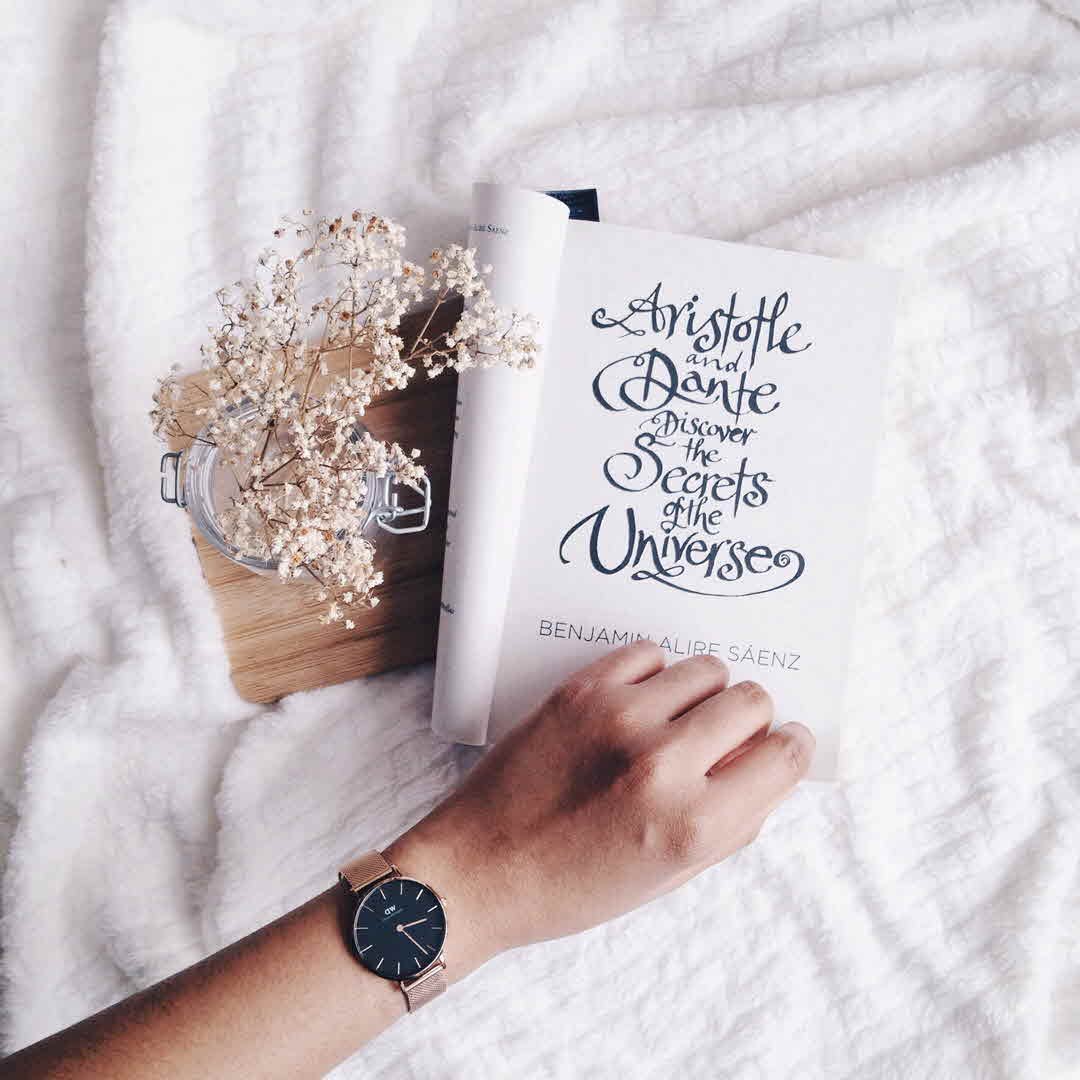 Aristotle
and
Dante
Discover
the
Secrets
of the
Universe
BENJAMIN ALIRE SÁENZ
SÁENZ
DW